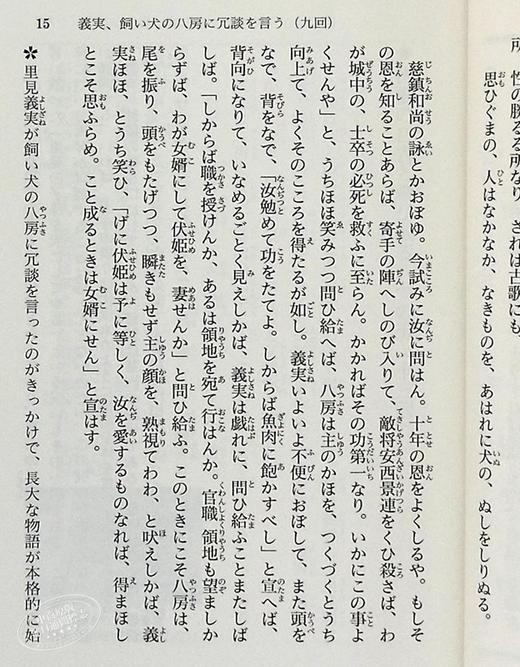 15　義実、飼い犬の八房に冗談を言う（九回）
性の勝るる所なり、されは古歌にも、
思ひぐまの、人はなかなか、なきものを、あはれに犬の、ぬしをしりぬる。
慈鎮和尚の詠とかおぼゆ。今試みに汝に問はん。十年の恩をよくしるや。もしそ
の恩を知ることあらば、寄手の陣へしのび入りて、敵将安西景連をくひ殺さば、わ
が城中の、士卒の必死を救ふに至らん。かかればその功第一なり。いかにこの事よ
くせんや」と、うちほほ笑みつつ問ひ給へば、八房は主のかほを、つくづくとうち
向上て、よくそのこころを得たるが如し。義実いよいよ不便におぼして、また頭を
なで、背をなで、「汝勉めて功をたてよ。しからば魚肉に飽かすべし」と宣へば、
背向になりて、いなめるごとく見えしかば、義実は戯れに、問ひ給ふことまたしば
しば。「しからば職を授けんか、あるは領地を宛て行はんか。官職領地も望ましか
らずば、わが女婿にして伏姫を、妻せんか」と問ひ給ふ。このときにこそ八房は、
尾を振り、頭をもたげつつ、瞬きもせず主の顔を、熟視てわわ、と吠えしかば、義
実ほほ、とうち笑ひ、「げに伏姫は予に等しく、汝を愛するものなれば、得まほし
とこそ思ふらめ。こと成るときは女婿にせん」と宣はす。
✻里見義実が飼い犬の八房に冗談を言ったのがきっかけで、長大な物語が本格的に始